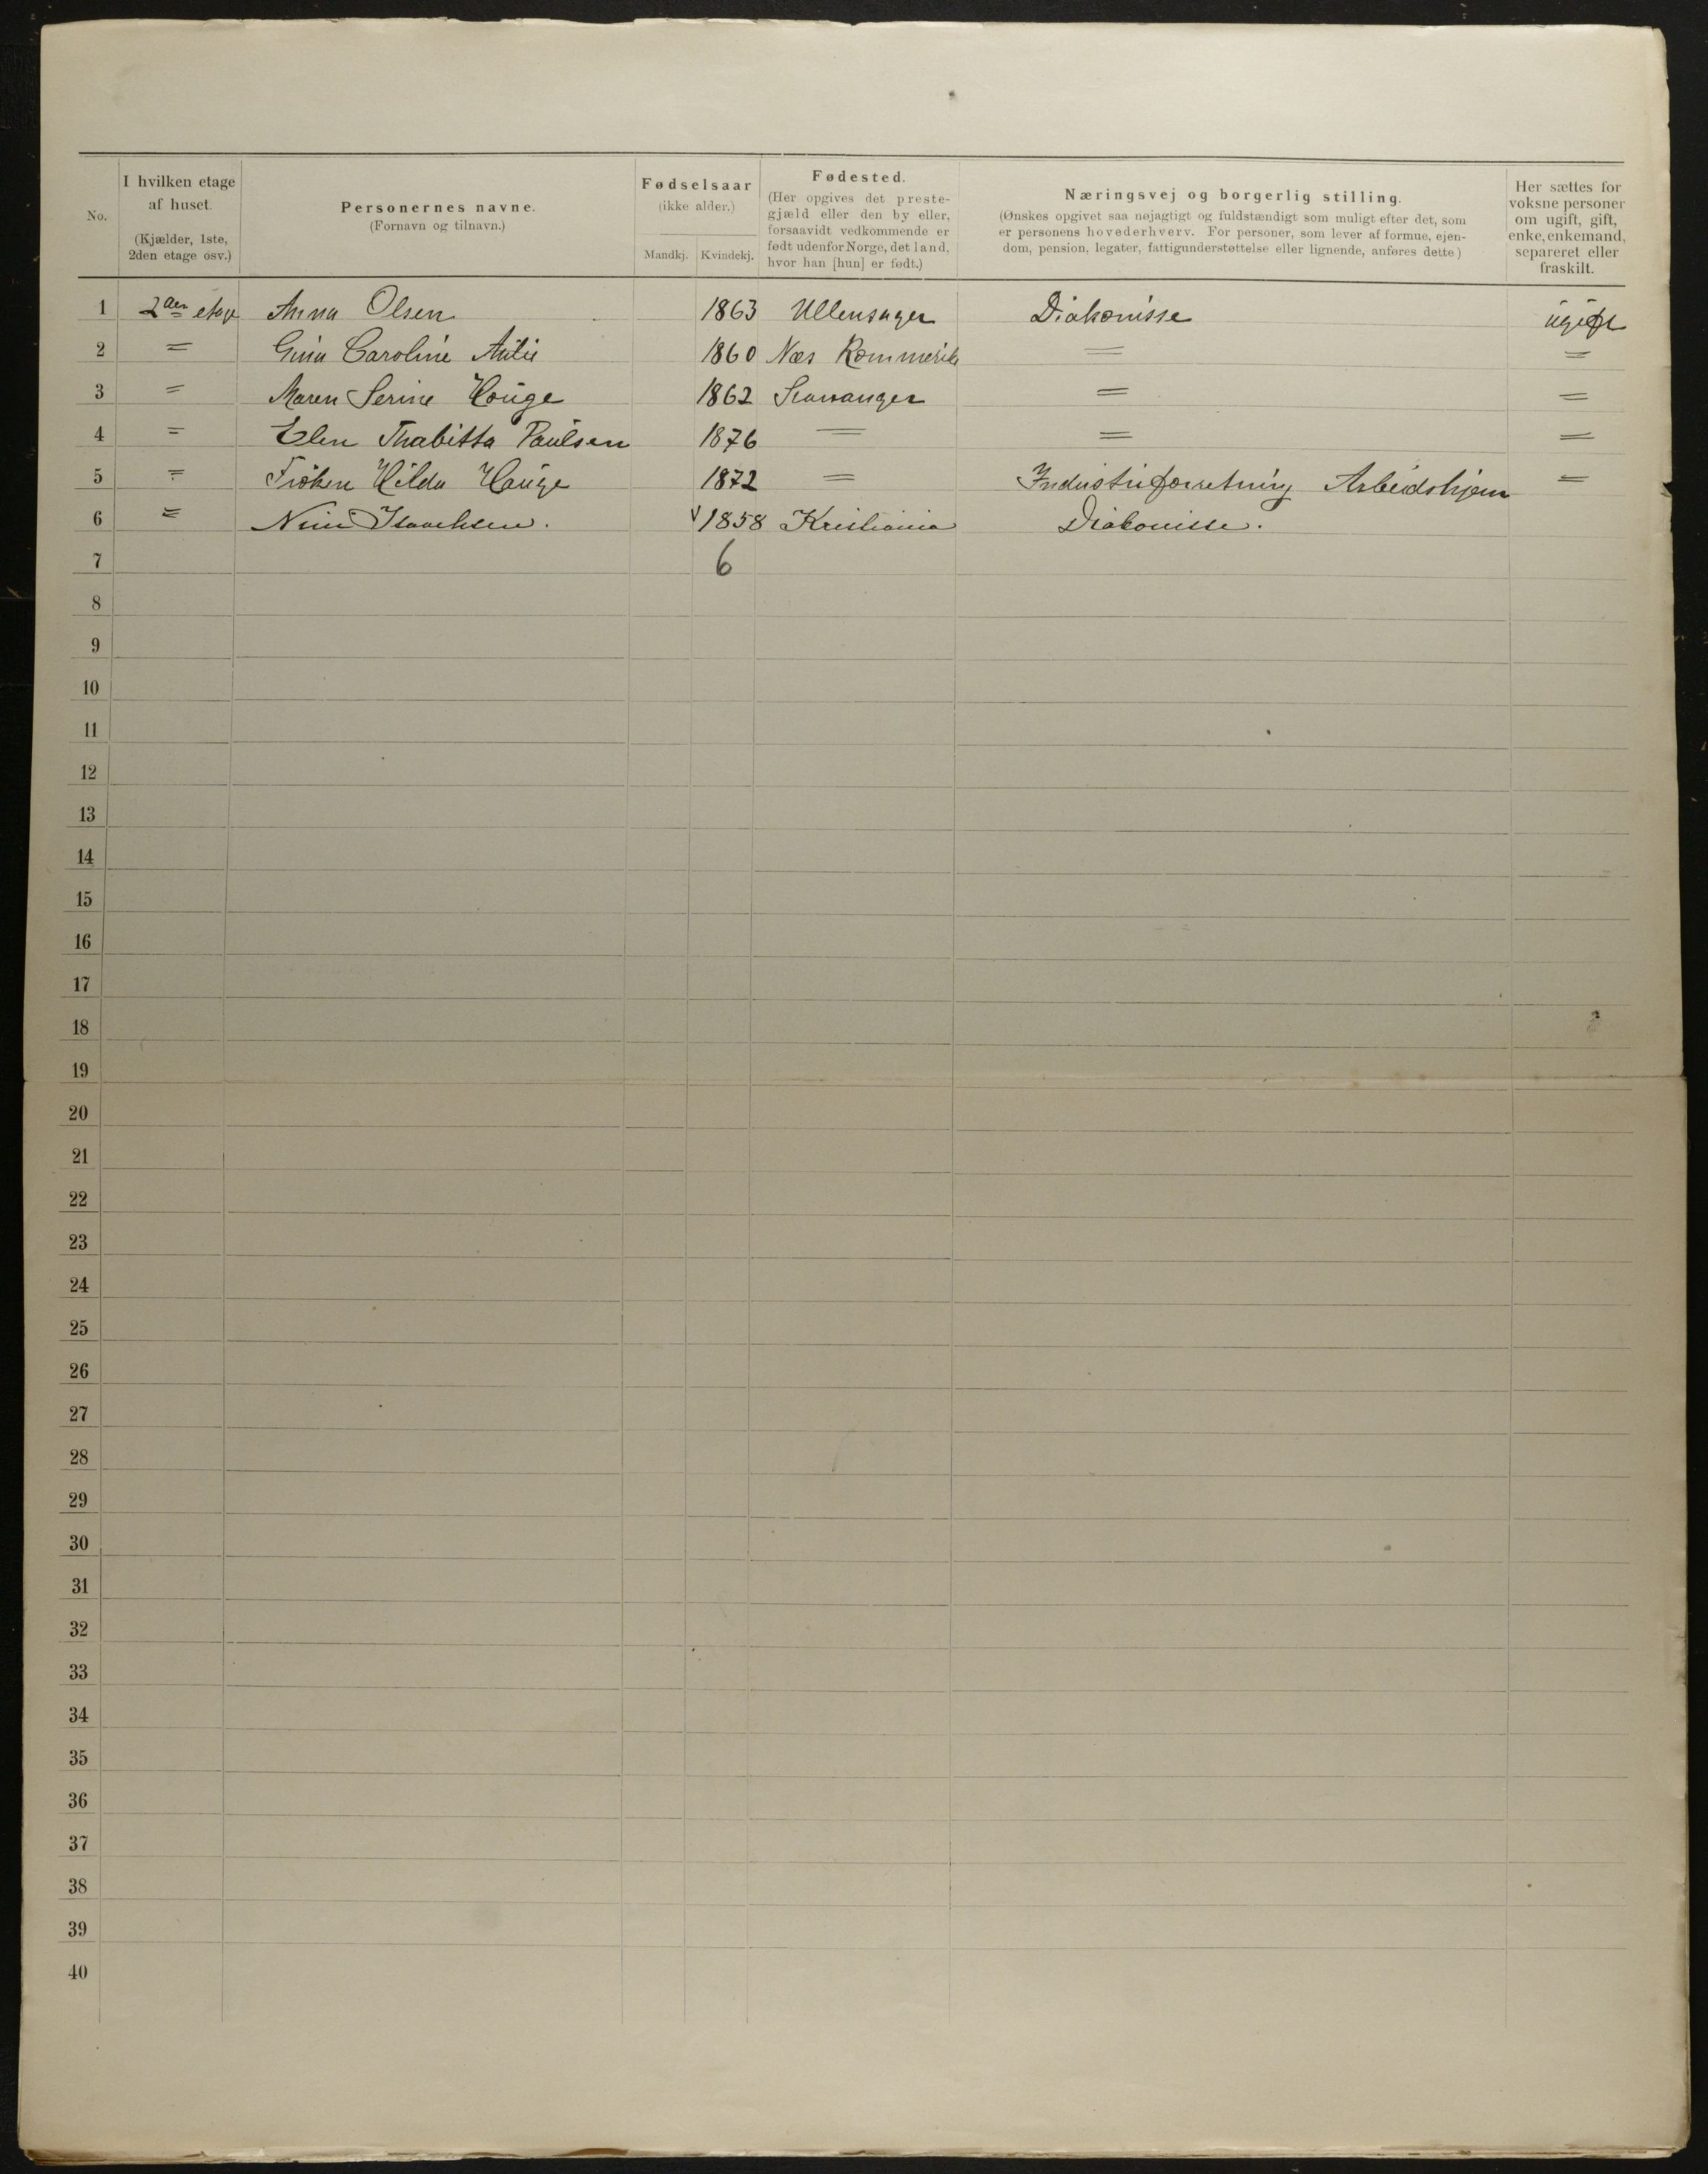 No.
I hvilken etage af huset. (Kjælder, 1ste, 2den etage osv.)
Personernes navne. (Fornavn og tilnavn.)
Fødselsaar (ikke alder.) Mandkj. Kvindekj.
Fødested. (Her opgives det prestegjæld eller den by eller, forsaavidt vedkommende er født udenfor Norge, det land, hvor han [hun] er født.)
Næringsvej og borgerlig stilling. (Ønskes opgivet saa nøjagtigt og fuldstændigt som muligt efter det, som er personens hovederhverv. For personer, som lever af formue, ejendom, pension, legater, fattigunderstøttelse eller lignende, anføres dette)
Her sættes for voksne personer om ugift, gift, enke, enkemand, separeret eller fraskilt.
1 2den etage Anna Olsen 1863 Ullensager Diakonisse ugift
2 = Gina Caroline 1860 Næs Rommerike = =
3 = Maren Serine Hauge 1862 Stavanger = =
4 = Elen Thabitta Paulsen 1876 = = =
5 = Frøken Hilda Hauge 1872 = Industriforretning Arbeidshjem =
6 = Nini Isaachsen. 1858 Kristiania Diakonisse.
7 6
8
9
10
11
12
13
14
15
16
17
18
19
20
21
22
23
24
25
26
27
28
29
30
31
32
33
34
35
36
37
38
39
40